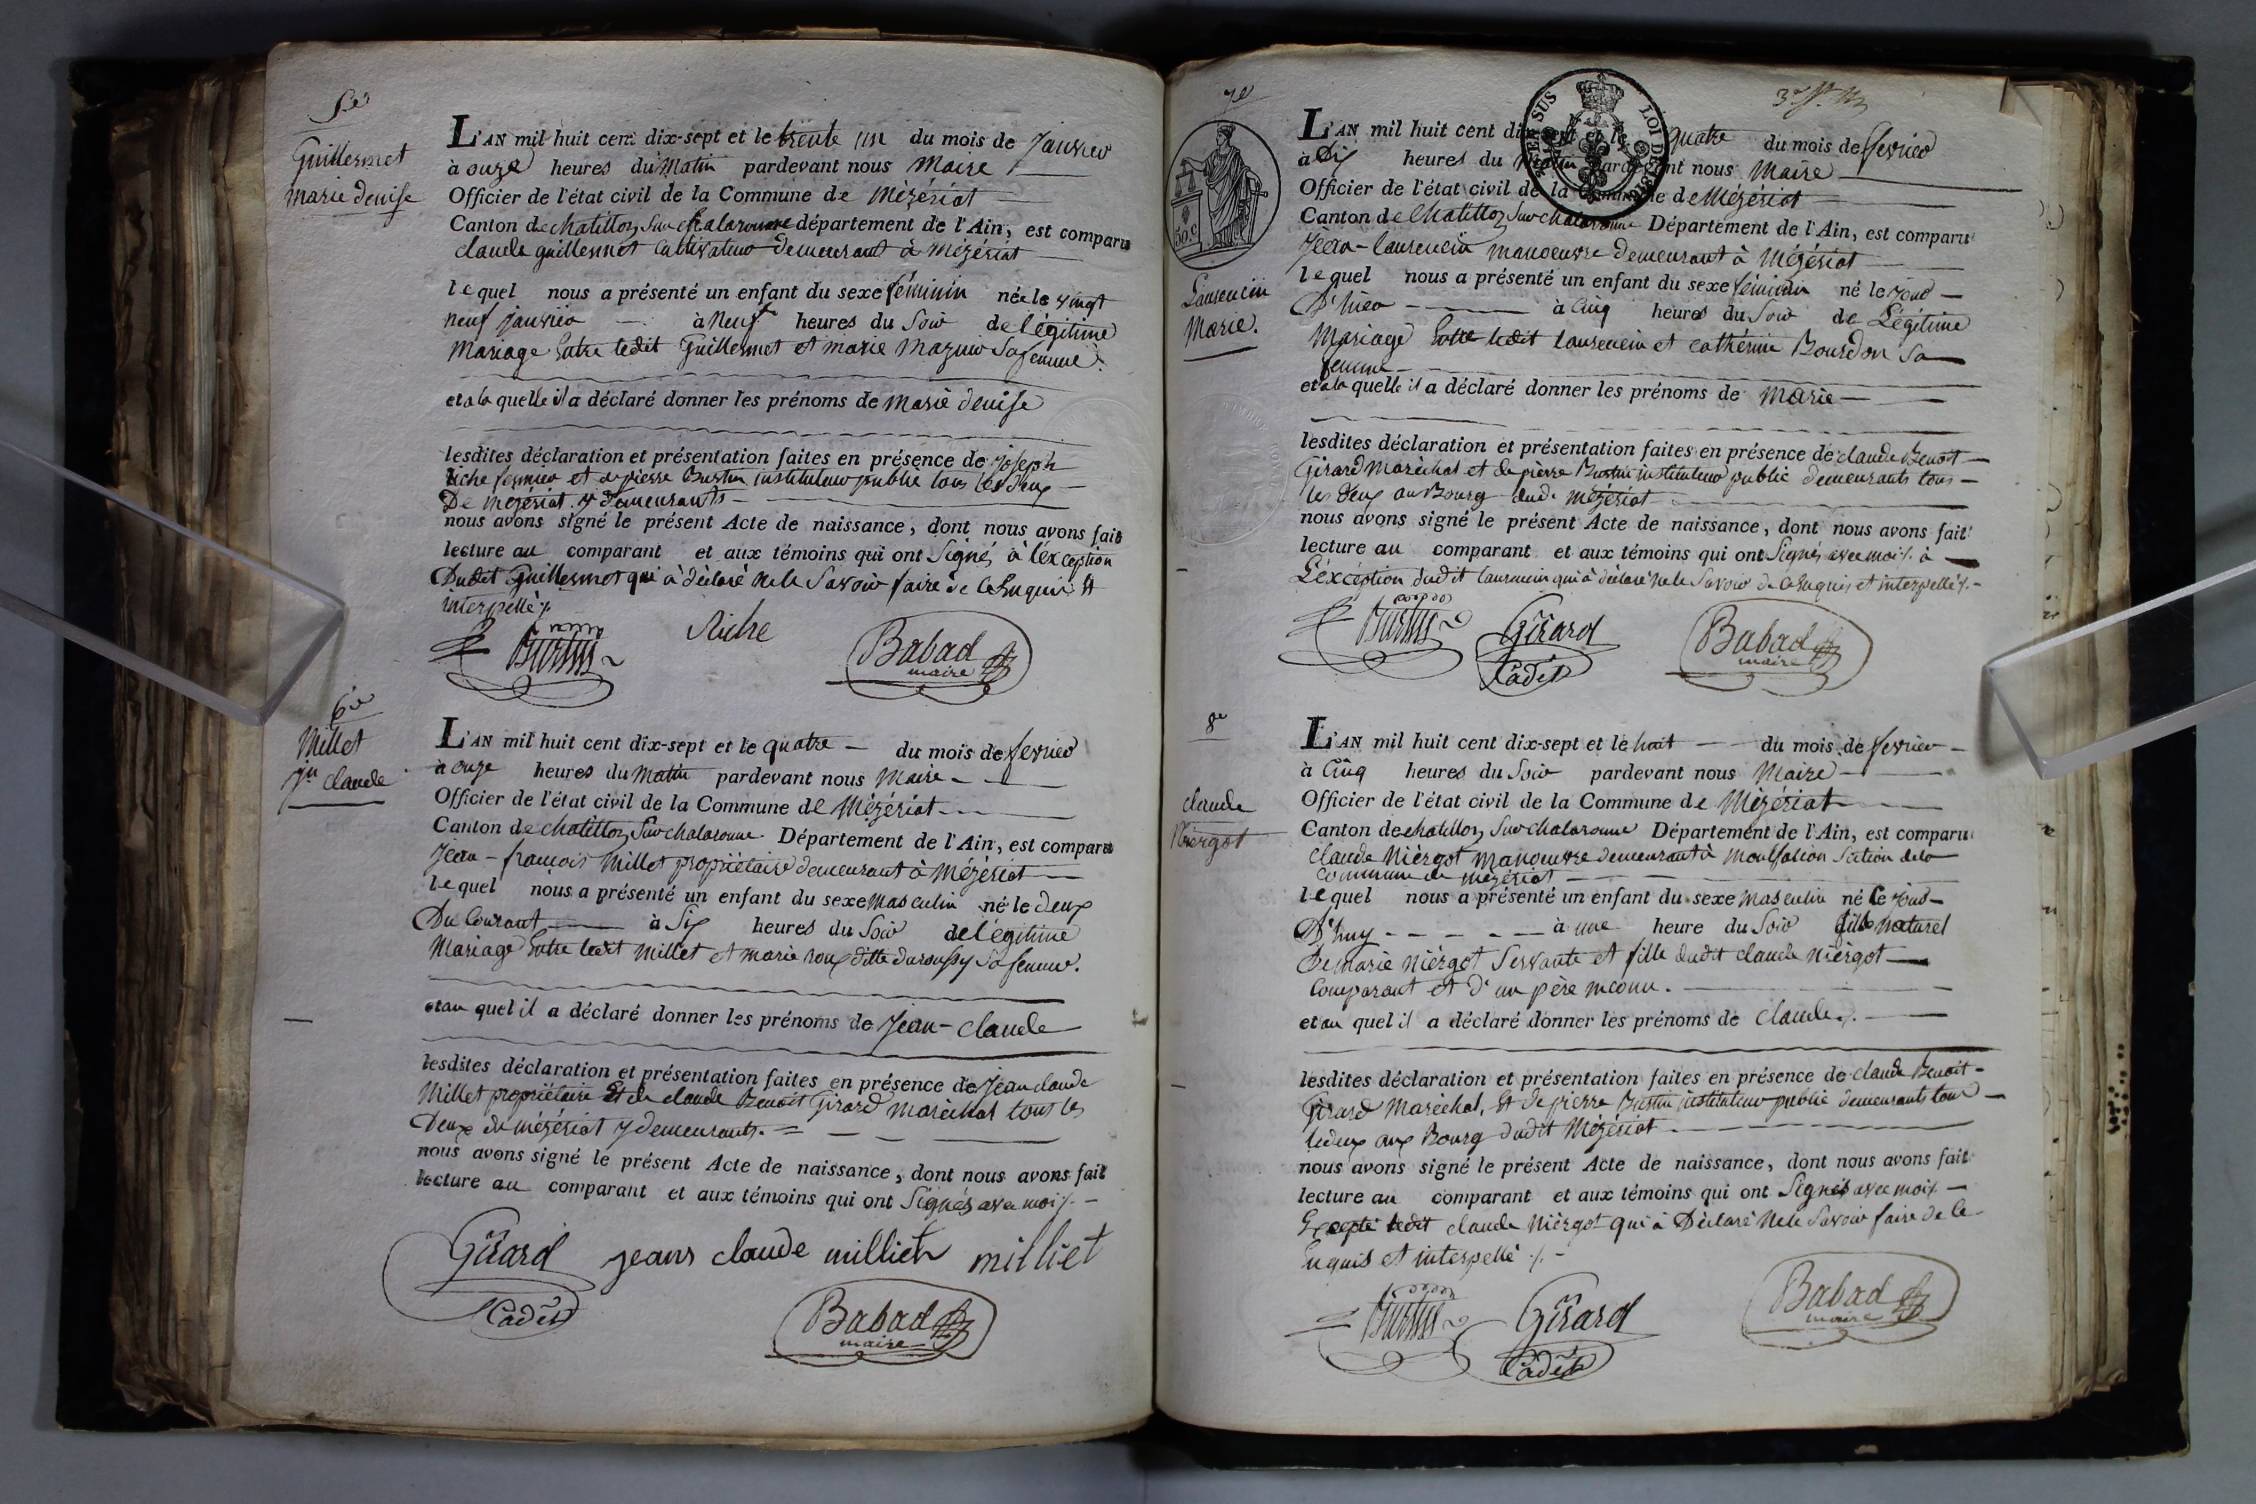 5e
Guillermet
marie denise
L'AN mil huit cent dix-sept et le trente un du mois de janvier
à onze heures du Matin pardevant nous Maire
Officier de l'état civil de la Commune de Mézériat
Canton de chatillon Sur Chalaronne département de l'Ain, est comparu
claude guillermet Cultivateur demeurant à mézériat
lequel nous a présenté un enfant du sexe féminin née le vingt
neuf janvier à Neuf heures du Soir de légitime
Mariage Entre ledit Guillermet et marie Mazuir Sa femme.
et a la quelle il a déclaré donner les prénoms de Marie denise
lesdites déclaration et présentation faites en présence de Joseph
Riche fermier et de pierre Burtin instituteur public tous les deux
De Mézériat y demeurants
nous avons signé le présent Acte de naissance, dont nous avons fait
lecture au comparant et aux témoins qui ont Signés à l'éxception
Dudit Guillermet qui à déclaré ne le Savoir faire de ce Enquis et
interpellé ./.
Burtin Riche Babad
maire
6e
Millet
jn claude
L'AN mil huit cent dix-sept et le quatre du mois de fevrier
à onze heures du matin pardevant nous Maire
Officier de l'état civil de la Commune de Mézériat
Canton de chatillon Sur chalaronne Département de l'Ain, est comparu
Jean-françois Millet propriétaire demeurant à Mézériat
lequel nous a présenté un enfant du sexe masculin né le deux
Du Courant à Six heures du Soir de légitime
Mariage Entre ledit Millet et marie roux ditte duroussy Sa femme.
et au quel il a déclaré donner les prénoms de Jean-claude
lesdites déclaration et présentation faites en présence de Jean claude
Millet propriétaire Et de claude Benoit Girard Maréchal tout les
Deux de mézériat y demeurants.
nous avons signé le présent Acte de naissance, dont nous avons fait
lecture au comparant et aux témoins qui ont Signés avec moi ./.
Girard jeans claude milliet milliet
Cadet
Babad
maire
7e
50.c
Laurencin
Marie.
LOI DE 1816
L'AN mil huit cent dix-sept et le quatre du mois de fevrier
à Dix heures du Matin pardevant nous Maire
Officier de l'état civil de la Commune de Mézériat
Canton de Chatillon Sur chalaronne Département de l'Ain, est comparu
Jean-laurencin manoeuvre demeurant à Mézériat
lequel nous a présenté un enfant du sexe féminin né le jour
D'hier à Cinq heures du Soir de Légitime
Mariage Entre ledit laurencin et cathérine Bourdon Sa
femme
et a la quelle il a déclaré donner les prénoms de Marie
lesdites déclaration et présentation faites en présence de claude Benoit
Girard Maréchal et de pierre Burtin instituteur public demeurants tous
les deux au Bourg dud. mézériat
nous avons signé le présent Acte de naissance, dont nous avons fait
lecture au comparant et aux témoins qui ont Signés avec moi ./. à
L'éxcéption dudit laurencin qui à déclaré ne le Savoir de ce Enquis et interpellé ./.
Burtin Girard Babad
Cadet maire
8e
claude
Niergot
L'AN mil huit cent dix-sept et le huit du mois de fevrier
à Cinq heures du Soir pardevant nous Maire
Officier de l'état civil de la Commune de Mézériat
Canton de chatillon Sur chalaronne Département de l'Ain, est comparu
Claude Niérgot Manoeuvre demeurant à Montfalcon Section de la
Commune de mézériat
lequel nous a présenté un enfant du sexe masculin né le jour
D'huy à une heure du Soir fils naturel
De marie Niérgot Servante et fille dudit claude Niérgot
Comparant et d'un père inconu.
et au quel il a déclaré donner les prénoms de Claude ./.
lesdites déclaration et présentation faites en présence de claude Benoit
Girard Maréchal, Et de pierre Burtin instituteur public demeurants tous
les deux aux Bourg dudit Mézériat
nous avons signé le présent Acte de naissance, dont nous avons fait
lecture au comparant et aux témoins qui ont Signés avec moi ./.
Excepté ledit claude Niérgot qui à Déclaré Ne le Savoir faire de ce
Enquis et interpellé ./.
Burtin Girard Babad
Cadet maire